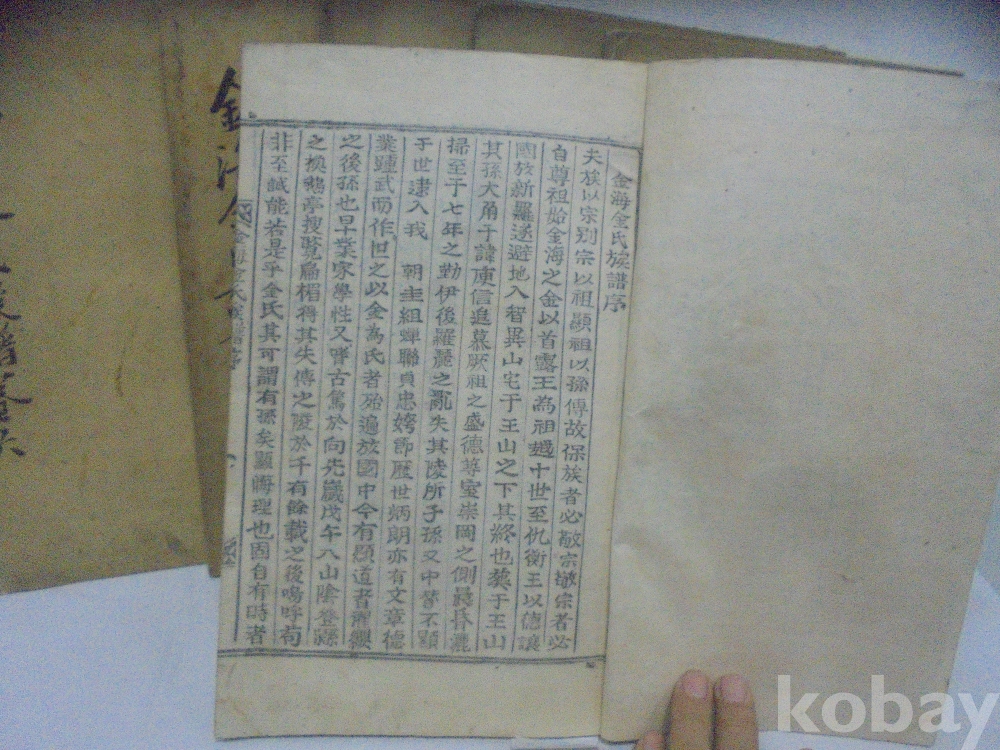 金海金氏族譜序
夫族以宗別宗以祖顯祖以孫傳故保族者必敬宗敬宗者必
自尊祖始金海之金以首露王為祖越十世至仇衡王以德讓
國於新羅遂避地入智異山宅于王山之下其終也葬于王山
其孫大角干諱庾信追慕厥祖之盛德等室崇岡之側晨昏灑
掃至于七年之勤伊後羅麗之亂失其陵所子孫又中替不顯
于世逮入我 朝圭組蟬聯貞忠姱節歷世炳朗亦有文章德
業踵武而作但之以金為氏者殆遍於國中今有顯道者
之後孫也早業家學性又嗜古篤於向先歲戊午入山陰登
之換鵝亭搜覽扁楣得其失傳之陵於千有餘載之後嗚呼苟
非至誠能若是乎金氏其可謂有孫矣顯晦理也固自有時者
金海金氏族譜序
kobay